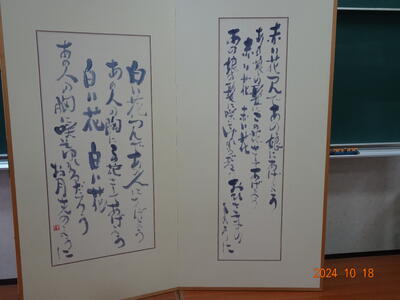 赤い花つんであの娘にあげよう
あの娘の髪にこの花さしてあげよう
赤い花 赤い花
あの娘の髪に咲いてゆれるだろう
お陽さまのように
白い花つんであの人にあげよう
あの人の胸にこの花さしてあげよう
白い花 白い花
あの人の胸に咲いてゆれるだろう
お月さんのように
2024 10 18